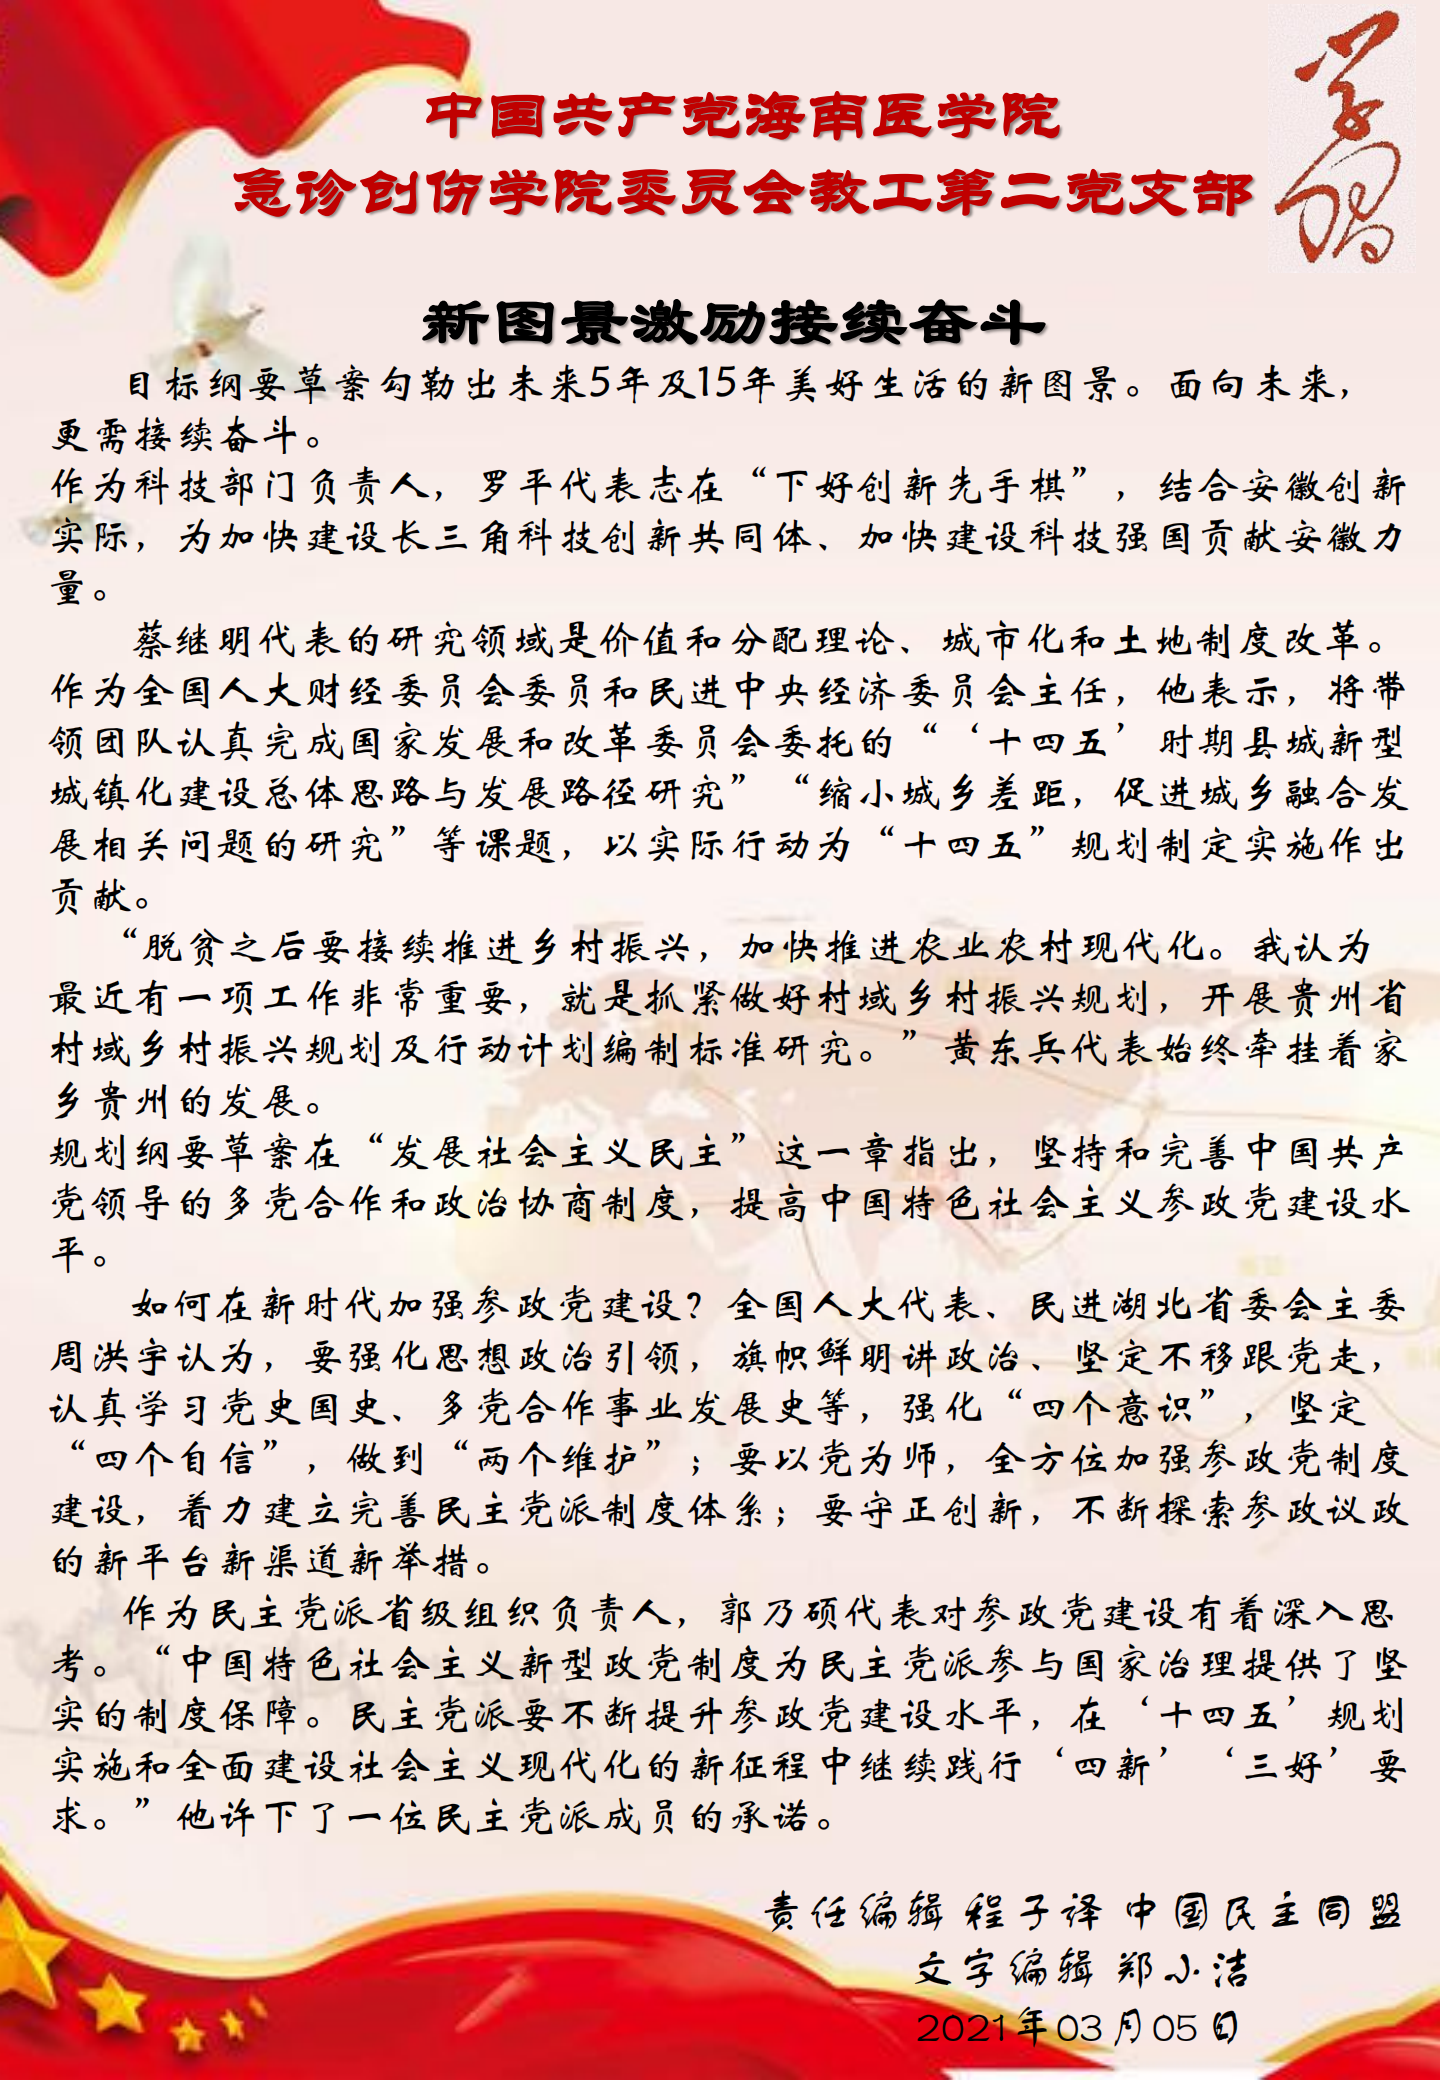 学习
中国共产党海南医学院
急诊创伤学院委员会教工第二党支部
新图景激励接续奋斗
目标纲要草案勾勒出未来5年及15年美好生活的新图景。面向未来，
更需接续奋斗。
作为科技部门负责人，罗平代表志在“下好创新先手棋”，结合安徽创新
实际，为加快建设长三角科技创新共同体、加快建设科技强国贡献安徽力
量。
蔡继明代表的研究领域是价值和分配理论、城市化和土地制度改革。
作为全国人大财经委员会委员和民进中央经济委员会主任，他表示，将带
领团队认真完成国家发展和改革委员会委托的“‘十四五’时期县城新型
城镇化建设总体思路与发展路径研究”“缩小城乡差距，促进城乡融合发
展相关问题的研究”等课题，以实际行动为“十四五”规划制定实施作出
贡献。
“脱贫之后要接续推进乡村振兴，加快推进农业农村现代化。我认为
最近有一项工作非常重要，就是抓紧做好村域乡村振兴规划，开展贵州省
村域乡村振兴规划及行动计划编制标准研究。”黄东兵代表始终牵挂着家
乡贵州的发展。
规划纲要草案在“发展社会主义民主”这一章指出，坚持和完善中国共产
党领导的多党合作和政治协商制度，提高中国特色社会主义参政党建设水
平。
如何在新时代加强参政党建设？全国人大代表、民进湖北省委会主委
周洪宇认为，要强化思想政治引领，旗帜鲜明讲政治、坚定不移跟党走，
认真学习党史国史、多党合作事业发展史等，强化“四个意识”，坚定
“四个自信”，做到“两个维护”；要以党为师，全方位加强参政党制度
建设，着力建立完善民主党派制度体系；要守正创新，不断探索参政议政
的新平台新渠道新举措。
作为民主党派省级组织负责人，郭乃硕代表对参政党建设有着深入思
考。“中国特色社会主义新型政党制度为民主党派参与国家治理提供了坚
实的制度保障。民主党派要不断提升参政党建设水平，在‘十四五’规划
实施和全面建设社会主义现代化的新征程中继续践行‘四新’‘三好’要
求。”他许下了一位民主党派成员的承诺。
责任编辑 程子译 中国民主同盟
文字编辑 郑小洁
2021年03月05日